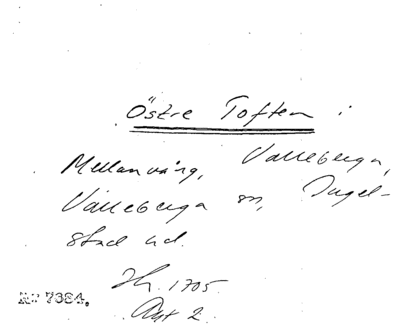 Östre Toften i
Mellanvång, Valleberga,
Valleberga sn, Ingel-
stad hd.
Jb. 1705
Akt 2.
Nr 7384.